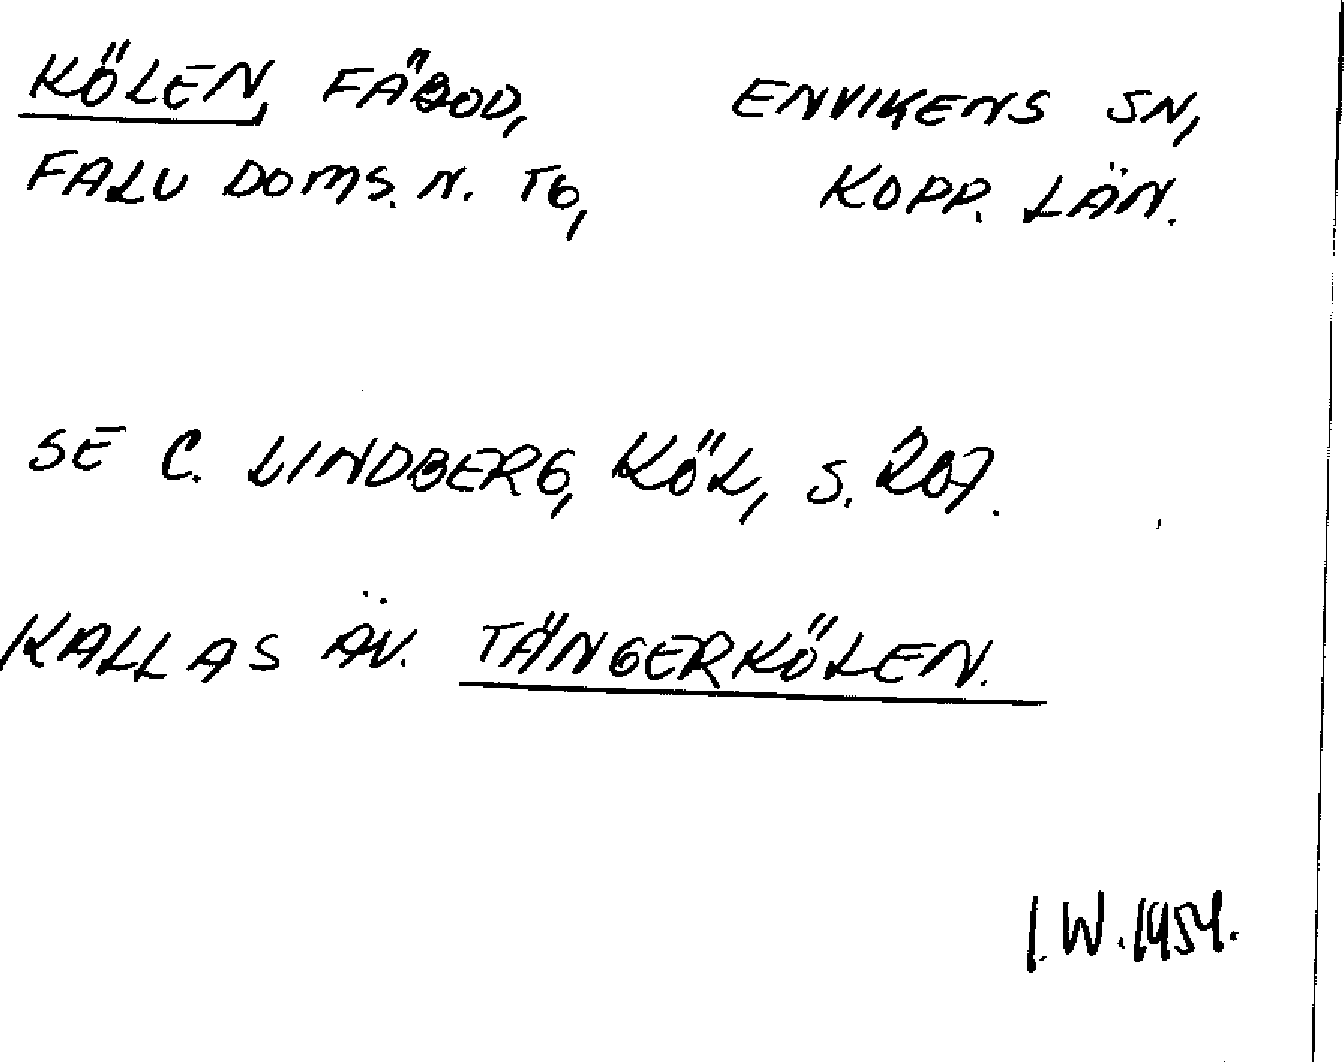 KÖLEN, FÄBOD, ENVIKENS SN,
FALU DOMS. N. TG, KOPP. LÄN.
SE C. LINDBERG, KÖL, S. 207.
KALLAS ÄV. TÄNGERKÖLEN.
I.W.1954.